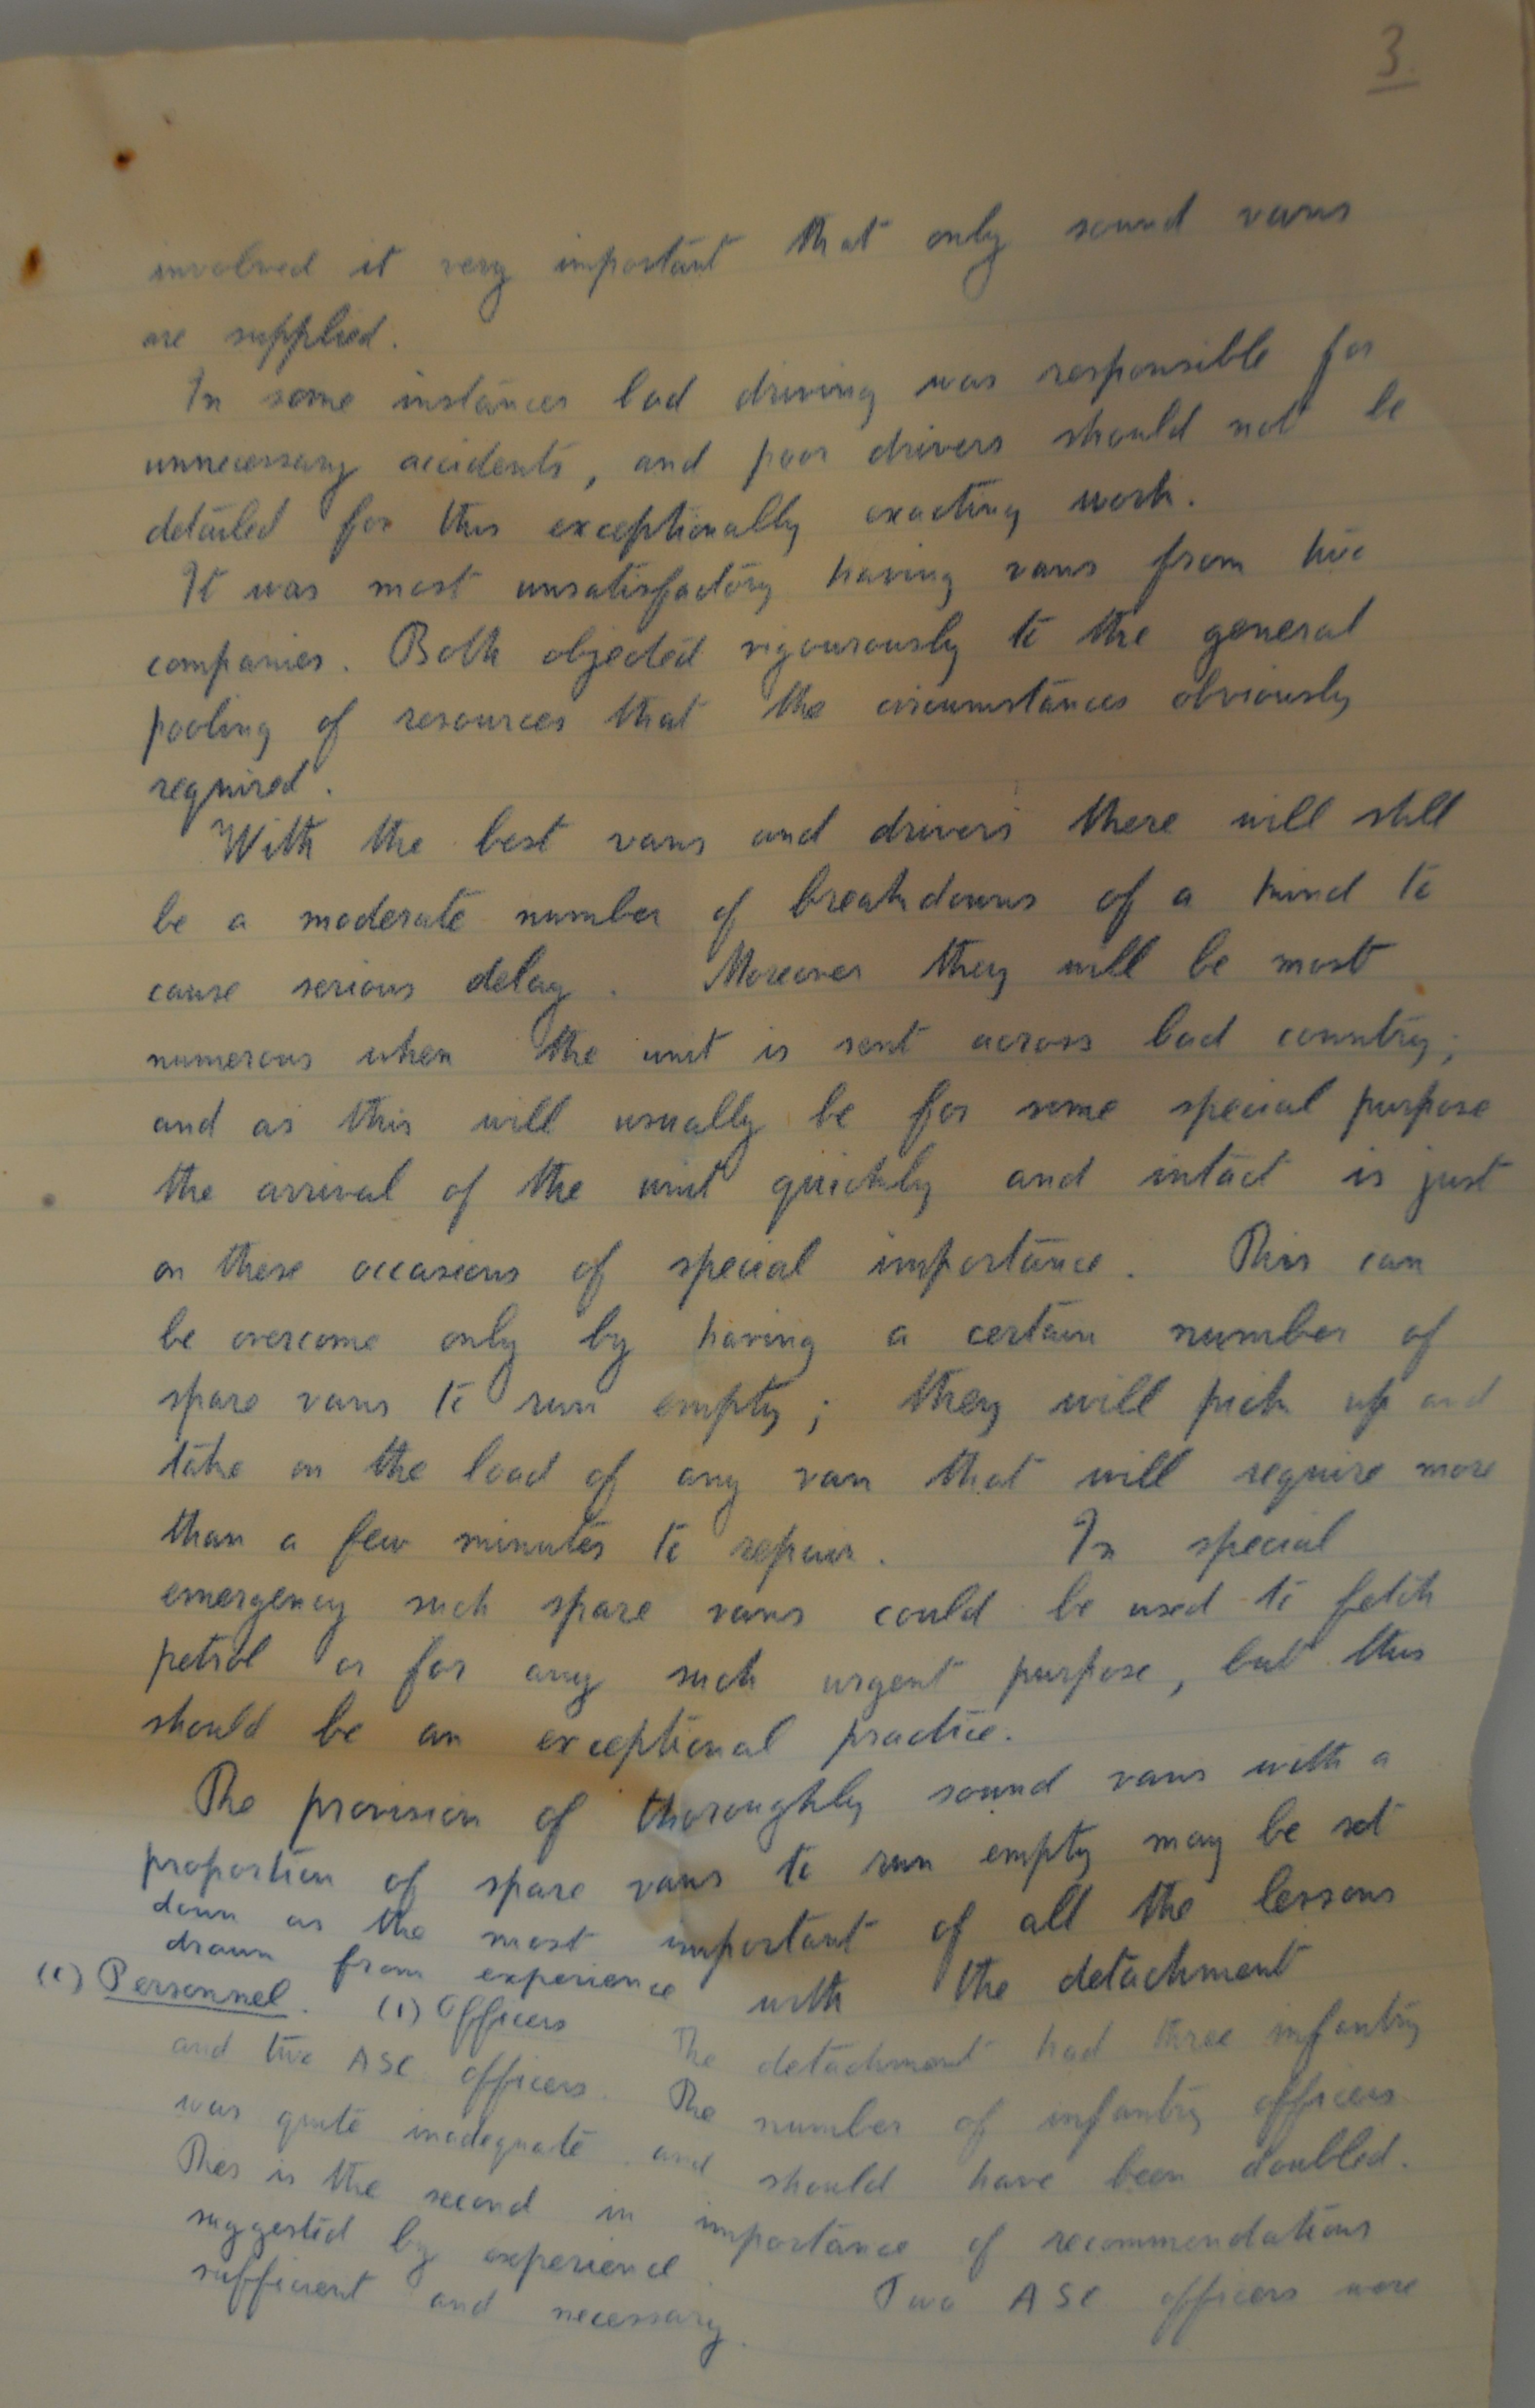 3.
involved it very important that only sound vans
are supplied.
In some instances bad driving was responsible for
unnecessary accidents, and poor drivers should not be
detailed for this exceptionally exacting work.
It was most unsatisfactory having vans from two
companies. Both objected vigourously to the general
pooling of resources that the circumstances obviously
required.
With the best vans and drivers there will still
be a moderate number of breakdowns of a kind to
cause serious delay. Moreover they will be most
numerous when the unit is sent across bad country;
and as this will usually be for some special purpose
the arrival of the unit quickly and intact is just
on these occasions of special importance. This can
be overcome only by having a certain number of
spare vans to run empty; they will pick up and
take on the load of any van that will require more
than a few minutes to repair. In special
emergency such spare vans could be used to fetch
petrol or for any such urgent purpose, but this
should be an exceptional practice.
The provision of thoroughly sound vans with a
proportion of spare vans to run empty may be set
down as the most important of all the lessons
drawn from experience with the detachment
(c) Personnel. (1) Officers The detachment had three infantry
and two ASC officers. The number of infantry officers
was quite inadequate and should have been doubled.
This is the second in importance of recommendations
suggested by experience. Two ASC officers were
sufficient and necessary.